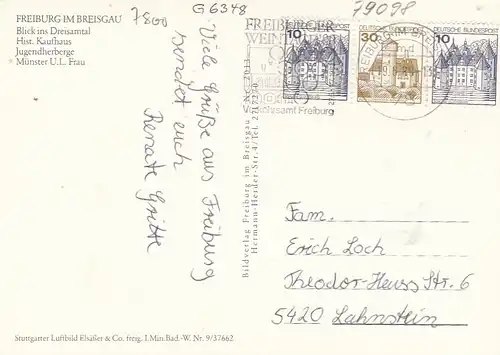 FREIBURG IM BREISGAU
Blick ins Dreisamtal
Hist. Kaufhaus
Jugendherberge
Münster U.L. Frau
7800
G 6348
79098
FREIBURGER
WEIN
Verkehrsamt Freiburg
10
30
10
DEUTSCHE BUNDESPOST
FREIBURG IM BREI
Viele Grüße aus Freiburg
sendet euch
Renate Gritte
Bildverlag Freiburg im Breisgau
Hermann-Herder-Str. 4/Tel. 272250
Fam.
Erich Loch
Theodor-Heuss Str. 6
5420 Lahnstein
Stuttgarter Luftbild Elsäßer & Co. freig. I.Min.Bad.-W. Nr. 9/37662